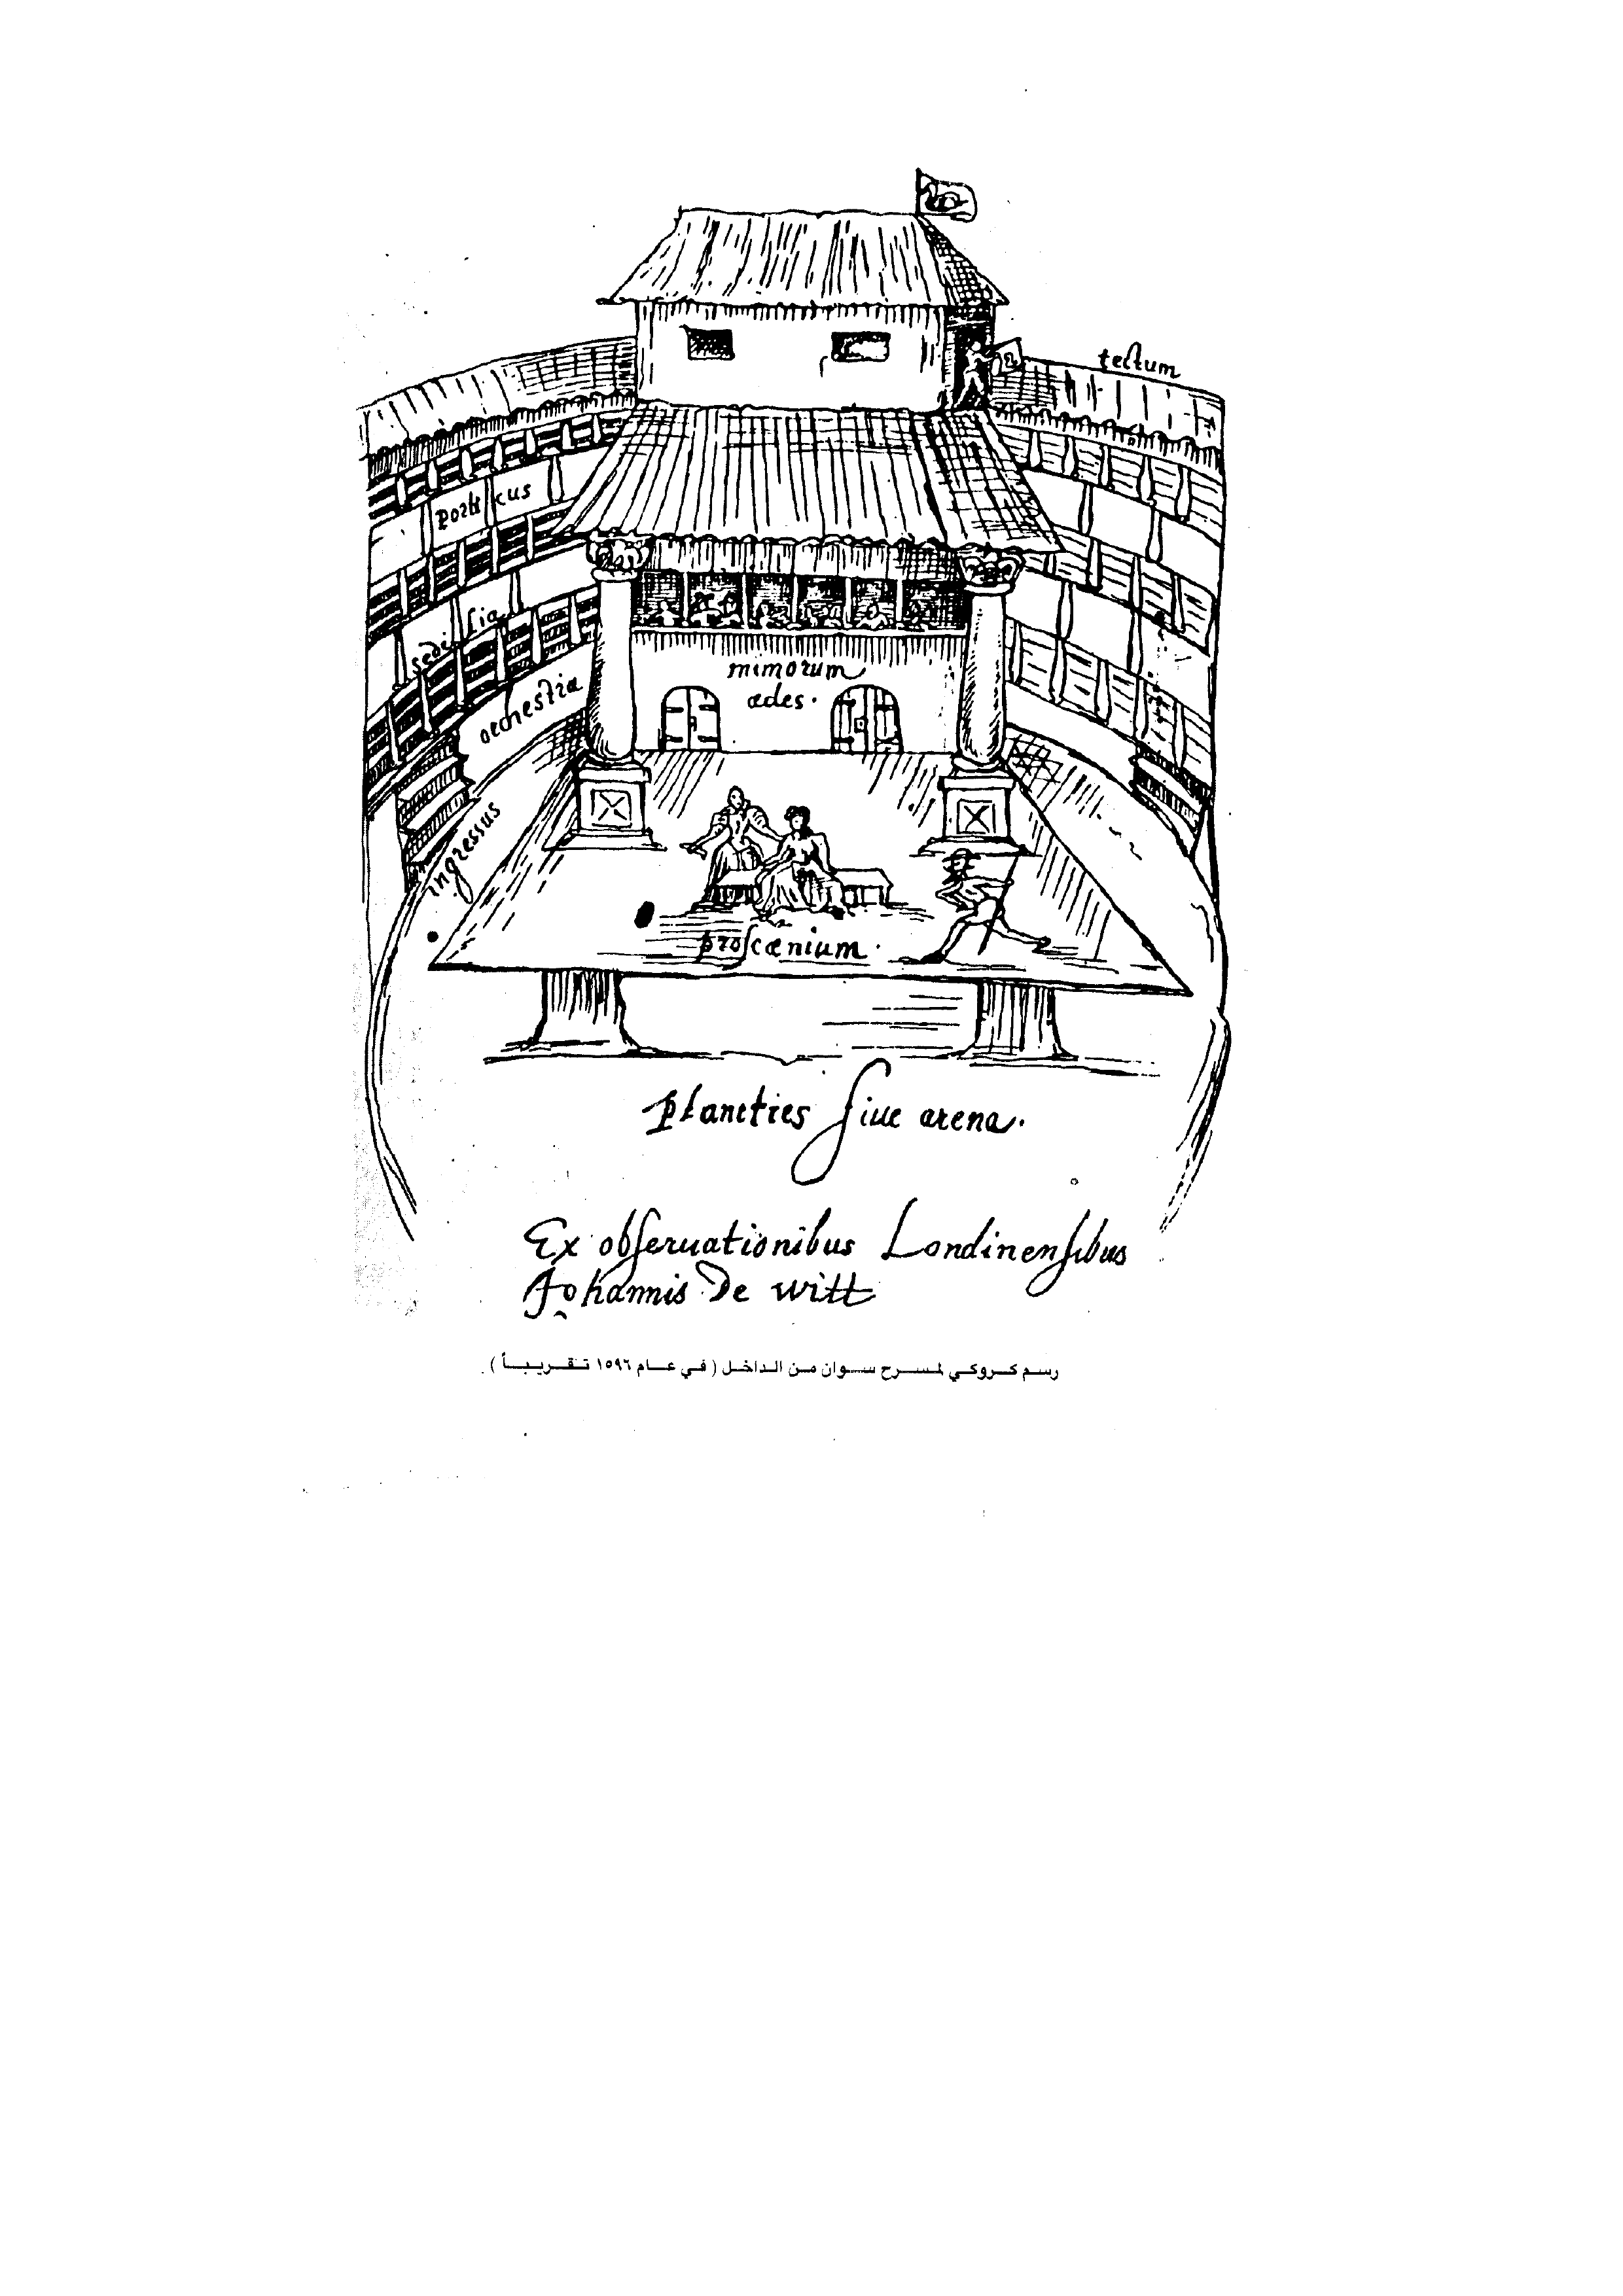 tectum
porticus
sedilia
mimorum
ædes.
orchestra
ingressus
proscænium.
planities siue arena.
Ex obseruationibus Londinensibus
Johannis De witt
رسم كروكي لمسرح سوان من الداخل ( في عام ١٥٩٦ تقريباً ) .